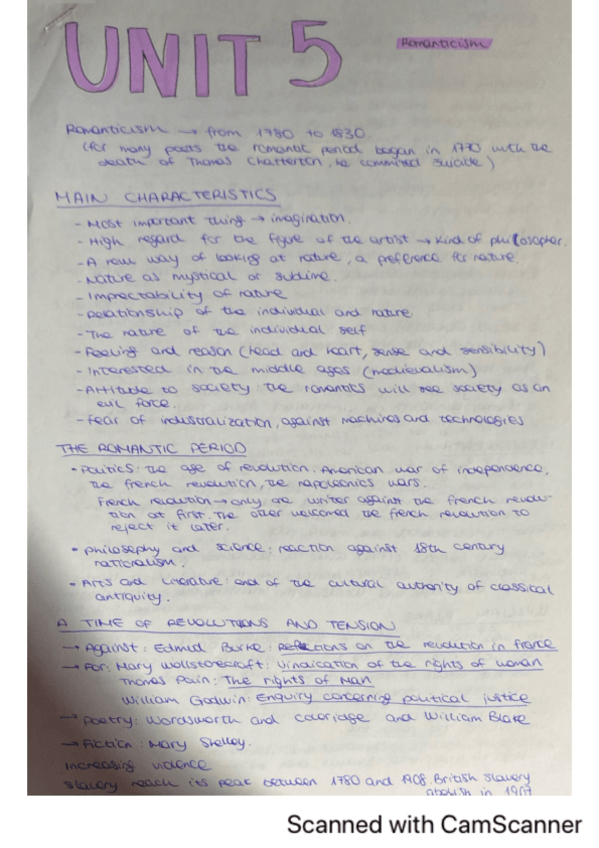 UNIT 5
Romanticism
Romanticism → from 1780 to 1830
(for many poets the romantic period began in 1770 with the
death of Thomas Chatterton, he commited suicide)
MAIN CHARACTERISTICS
- Most important thing → imagination.
- High regard for the figure of the artist → kind of philosopher.
- A new way of looking at nature, a preference for nature.
- Nature as mystical or sublime.
- Impectability of nature
- Relationship of the individual and nature
- The nature of the individual self
- Feeling and reason (head and heart, sense and sensibility)
- Interested in the middle ages (medievalism)
- Attitude to society: the romantics will see society as an
evil force.
- Fear of industralization, against machines and technologies
THE ROMANTIC PERIOD
• Politics: the age of revolution. American war of independence,
the french revolution, the napoleonics wars.
French revolution → only one writer against the french revolu-
tion at first. The other welcomed the french revolution to
reject it later.
• philosophy and science: reaction against 18th century
rationalism.
• Arts and literature: end of the cultural authority of classical
antiquity.
A TIME OF REVOLUTIONS AND TENSION
→ Against: Edmud Burke: Reflections on the revolution in france
→ For: Mary Wollstonecraft: Vindication of the rights of woman
Thomas Pain: The rights of Man
William Godwin: Enquiry concerning political justice
→ Poetry: Wordsworth and coloridge and William Blake
→ Fiction: Mary Shelley.
Increasing violence
Slavery reach its peak between 1780 and 1908. British slavery
abolish in 1907
Scanned with CamScanner